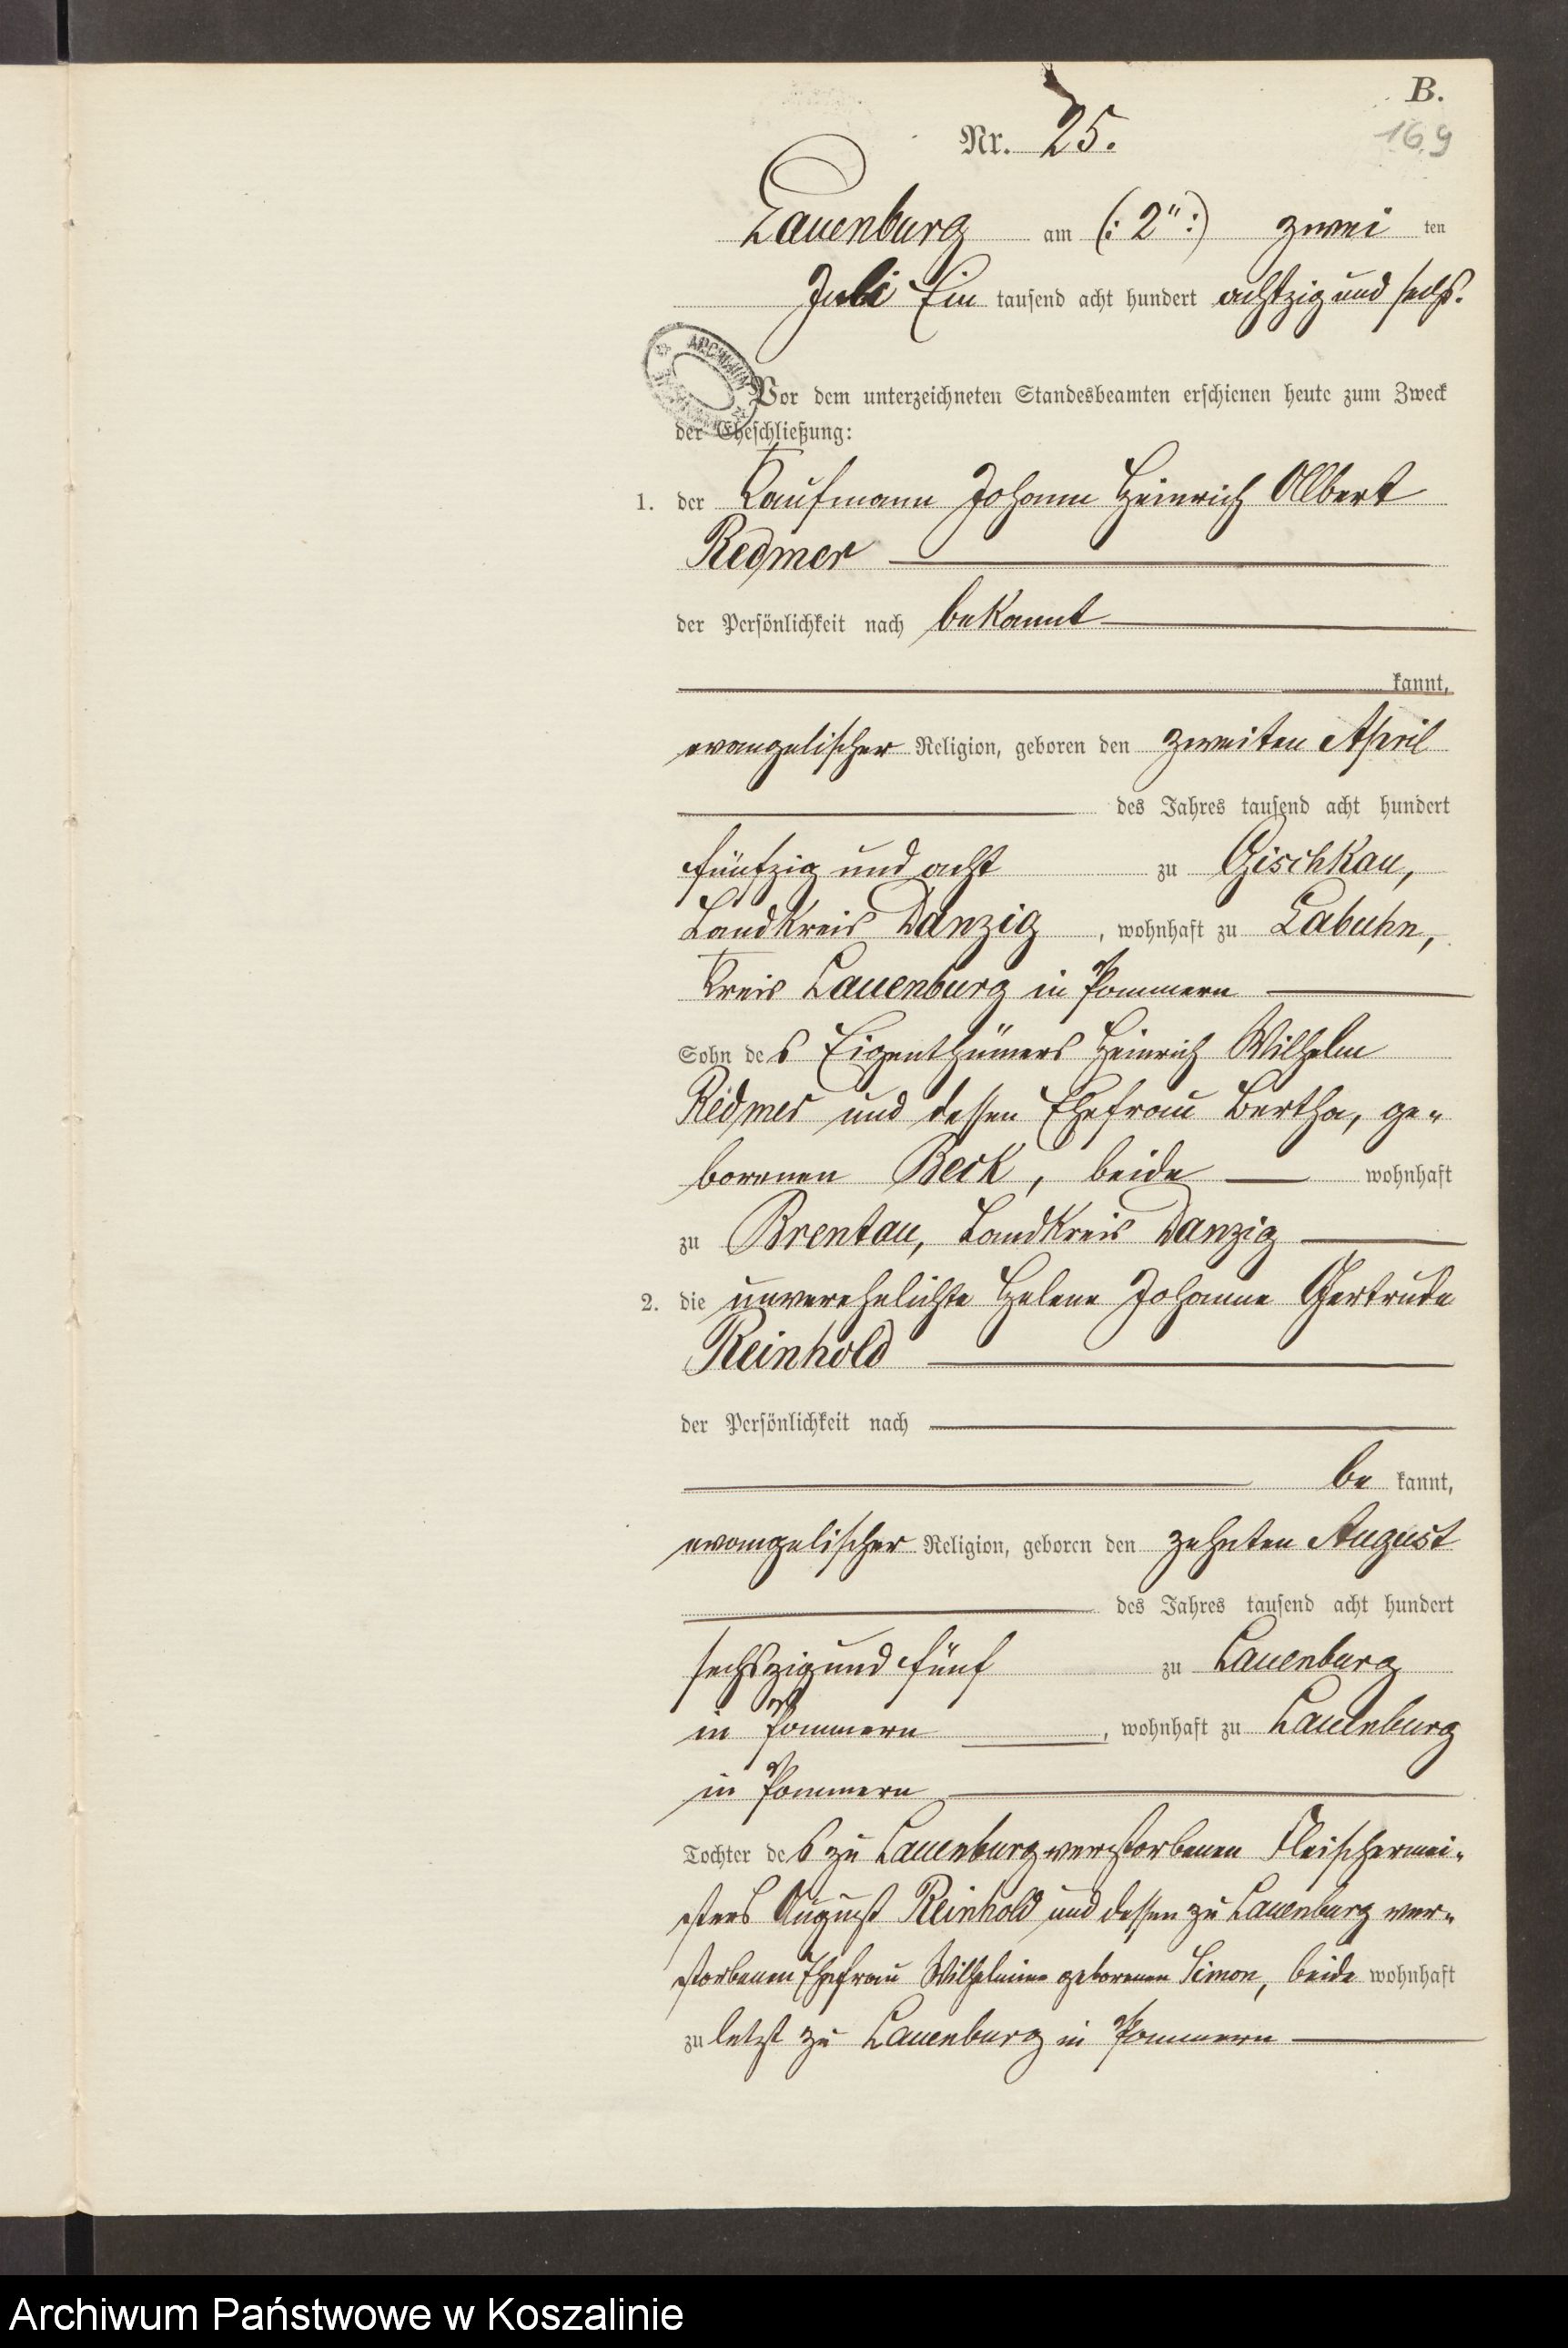 B.
Nr. 25.
169
Lauenburg am (: 2" :) zwei ten
Juli Ein tausend acht hundert achtzig und sechs.
ARCHIWUM
Vor dem unterzeichneten Standesbeamten erschienen heute zum Zweck
der Eheschließung:
1. der Kaufmann Johann Heinrich Albert
Redmer
der Persönlichkeit nach bekannt
kannt,
evangelischer Religion, geboren den zweiten April
des Jahres tausend acht hundert
fünfzig und acht zu Gischkau,
Landkreis Danzig, wohnhaft zu Labuhn,
Kreis Lauenburg in Pommern
Sohn des Eigenthümers Heinrich Wilhelm
Redmer und dessen Ehefrau Bertha, ge-
borenen Beck, beide wohnhaft
zu Brentau, Landkreis Danzig
2. die unverehelichte Helene Johanne Gertrude
Reinhold
der Persönlichkeit nach
be kannt,
evangelischer Religion, geboren den zehnten August
des Jahres tausend acht hundert
sechszig und fünf zu Lauenburg
in Pommern, wohnhaft zu Lauenburg
in Pommern
Tochter des zu Lauenburg verstorbenen Fleischermei-
sters August Reinhold und dessen zu Lauenburg ver-
storbenen Ehefrau Wilhelmine geborenen Simon, beide wohnhaft
zuletzt zu Lauenburg in Pommern
Archiwum Państwowe w Koszalinie